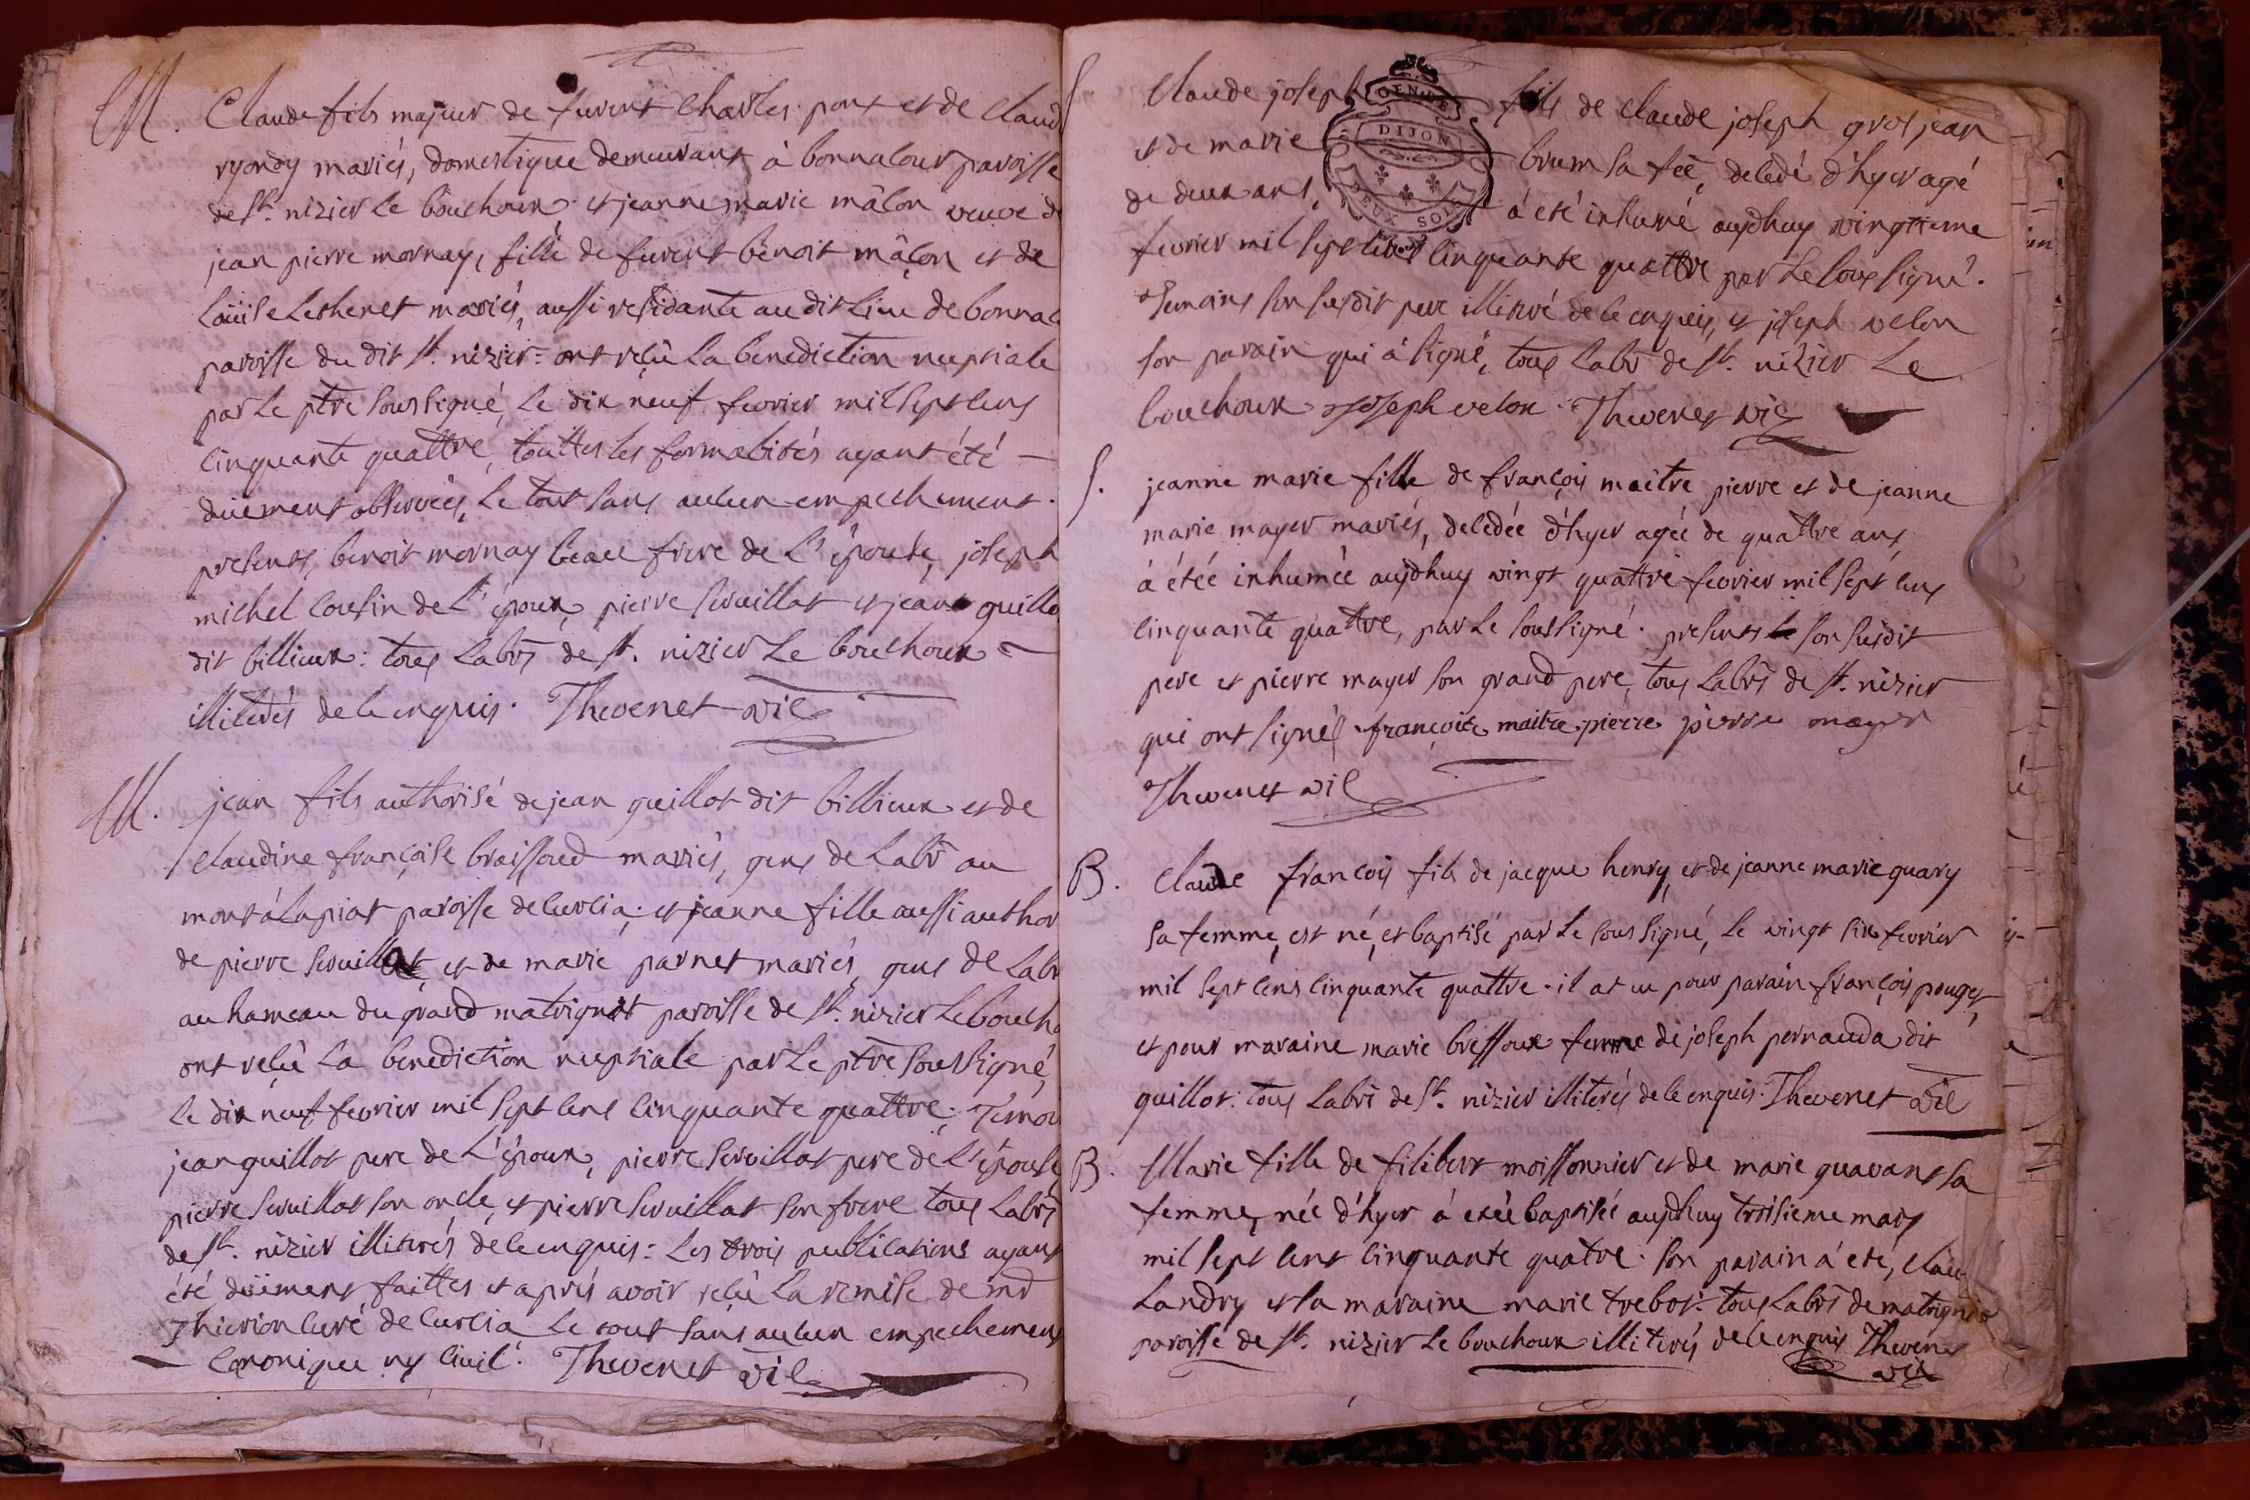 M. Claude fils majeur de furent Charles pont et de Claud
ryondy mariés, domestique demeurant à bonnacour paroisse
de St. nizier le bouchoux et jeanne marie mâlon veuve d
jean pierre mornay, fille de furent benoit mâçon et de
Loüise Lethenet mariés, aussi residante au dit lieu de bonnac
paroisse du dit St. nizier: ont reçû la benediction nuptiale
par le ptre soussigné, le dix neuf fevrier mil sept cens
cinquante quattre, touttes les formalités ayant été
düement observées, le tout sans aucun empechement.
presents, benoit mornay beau frere de l'épouse, joseph
michel cousin de l'époux, pierre servillat et jean guillo
dit billieux: tous labrs de St. nizier le bouchoux
illiterés de ce enquis. Thevenet vic
M. jean fils authorisé de jean guillot dit billieux et de
claudine françoise braissoud mariés, gens de labr au
mont à lapiat paroisse de curcia; et jeanne fille aussi author
de pierre servillat et de marie parnet mariés, gens de labr
au hameau du grand matrignat paroisse de St. nizier le boucho
ont reçû la benediction nuptiale par le ptre soussigné,
le dix neuf fevrier mil sept cens cinquante quattre; Temoi
jean guillot pere de l'époux, pierre servillat pere de l'épouse,
pierre servillat son oncle, et pierre servillat son frere tous labrs
de St. nizier illiterés de ce enquis: les trois publications ayant
été düement faittes et aprés avoir reçû la remise de mr
Thierion curé de curcia le tout sans aucun empechement
canonique ny civil. Thevenet vic
S. Claude joseph fils de claude joseph gros jean
et de marie brum sa fee, decedé d'hyer agé
de deux ans, a été inhumé aujdhuy vingtieme
fevrier mil sept cens cinquante quattre par le soussigné.
Temoins son susdit pere illiteré de ce enquis, et joseph velon
son parain qui à signé, tous labrs de St. nizier le
bouchoux joseph velon Thevenet vic
GEN DE
DIJON
DEUX SOLS
S. jeanne marie fille de françois maitre pierre et de jeanne
marie mayer mariés, decedée d'hyer agée de quattre ans,
à étée inhumée aujdhuy vingt quattre fevrier mil sept cens
cinquante quattre, par le soussigné. presents son susdit
pere et pierre mayer son grand pere, tous labrs de St. nizier
qui ont signés françois maitre pierre pierre mayer
Thevenet vic
B. Claude françois fils de jacque henry, et de jeanne marie quary
sa femme, est né, et baptisé par le soussigné, le vingt six fevrier
mil sept cens cinquante quattre. il at eu pour parain françois pouget,
et pour maraine marie bressoux femme de joseph pernauda dit
guillot: tous labrs de St. nizier illiterés de ce enquis. Thevenet vic
B. Marie fille de filibert moissonnier et de marie guavant sa
femme, née d'hyer à etée baptisée aujdhuy troisieme mars
mil sept cent cinquante quatre. son parain à eté, clau
Landry et la maraine marie trebot: tous labrs de matrigna
paroisse de St. nizier le bouchoux illiterés de ce enquis Theven
vic